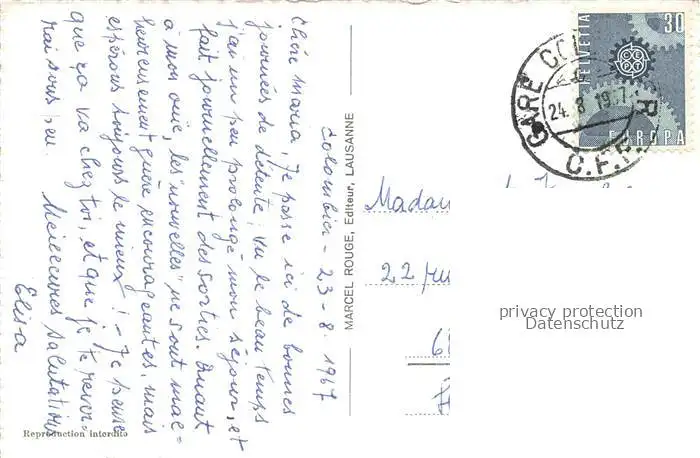 Colombier - 23-8. 1967
Chère Maria, Je passe ici de bonnes
journées de détente, vu le beau temps
j'ai un peu prolongé mon séjour, et
fait journellement des sorties. Quant
à mon ouïe, les "nouvelles" ne sont mal=
heureusement guère encourageantes, mais
espérons toujours le mieux! - Je pense
que ça va chez toi, et que je te rever-
rai sous peu. Meilleures salutations
Elisa
Reproduction interdite
MARCEL ROUGE, Editeur, LAUSANNE
HELVETIA
30
CEPT
EUROPA
GARE
24. 8 1967
C.F.F.
Madam
22 rue
privacy protection
Datenschutz